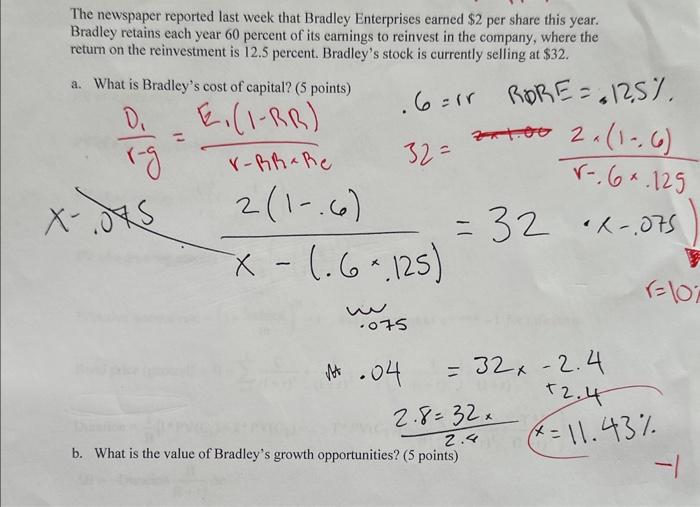 The newspaper reported last week that Bradley Enterprises earned $2 per share this year.
Bradley retains each year 60 percent of its earnings to reinvest in the company, where the
return on the reinvestment is 12.5 percent. Bradley's stock is currently selling at $32.
a. What is Bradley's cost of capital? (5 points)
.6 = rr RORE = .125%
D₁ / r-g = E₁(1-RR) / r-RR×Re
32 = 2×(1-.6) / r-.6×.125
x-.075
2(1-.6) / x-(.6×.125) = 32 ·x-.075)
r=10%
.075
.04 = 32x - 2.4
+2.4
2.8=32x
2.4
x=11.43%
-1
b. What is the value of Bradley's growth opportunities? (5 points)